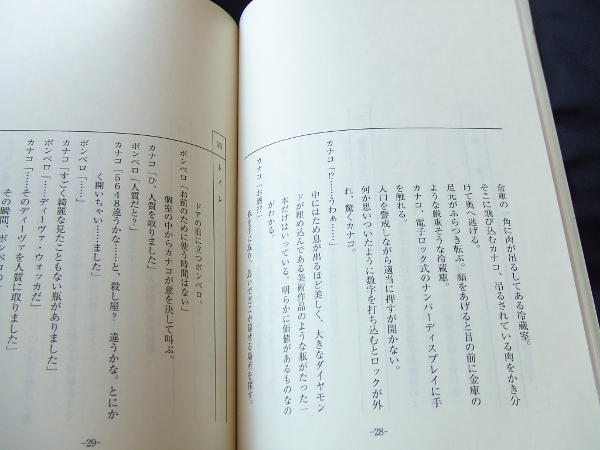 倉庫の一角に肉が吊るしてある冷蔵室。
そこに飛び込むカナコ、吊るされている肉をかき分
けて奥へ逃げる。
足元がふらつき転ぶ。顔をあげると目の前に金庫の
ような厳重そうな冷蔵庫。
カナコ、電子ロック式のナンバーディスプレイに手
を触れる。
入口を警戒しながら適当に押すが開かない。
何か思いついたように数字を打ち込むとロックが外
れ、驚くカナコ。
カナコ「!?……うわぁ……」
中にはため息が出るほど美しく、大きなダイヤモン
ドが埋め込んである美術作品のような瓶がたった一
本だけはいっている。明らかに価値があるものなの
がわかる。
カナコ「お酒??」
瓶を手に取り、急いでどこか隠せる場所を探す。
-28-
20 トイレ
ドアの前に立つボンベロ。
ボンベロ「お前のために使う時間はない」
個室の中からカナコが意を決して叫ぶ。
カナコ「ひ、人質を取りました」
ボンベロ「人質だと?」
カナコ「5648違うかな……と、殺し屋?　違うかな。とにか
く開いちゃい……ました」
ボンベロ「……」
カナコ「すごく綺麗な見たこともない瓶がありました」
ボンベロ「……ディーヴァ・ウォッカだ」
カナコ「……そのディーヴァを人質に取りました」
その瞬間、ボンベロの
-29-